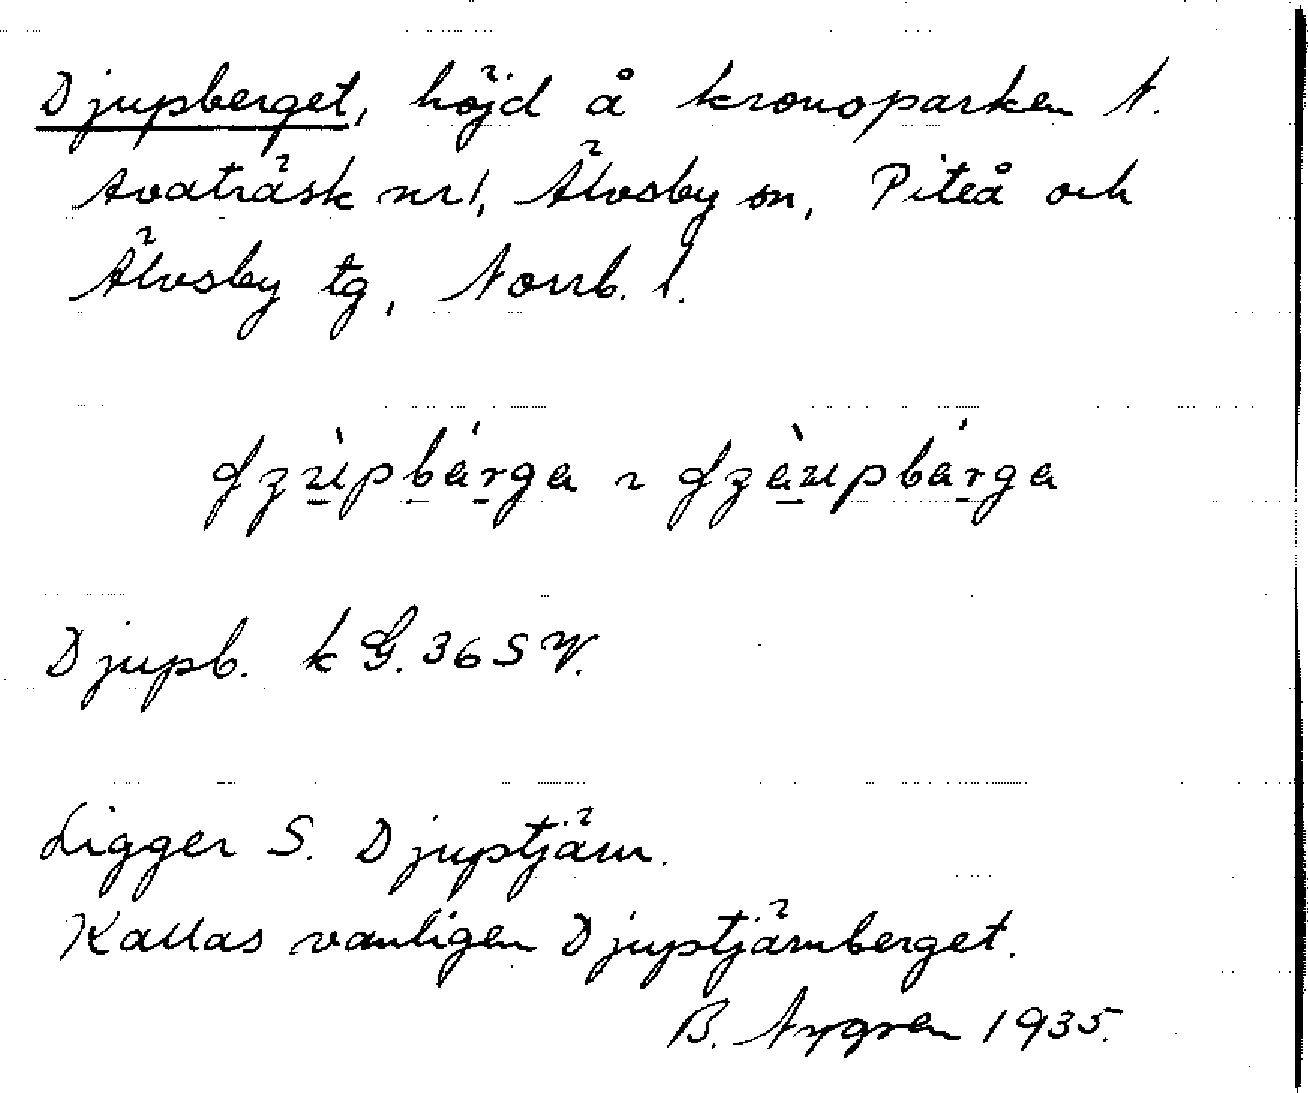 Djupberget, höjd å kronoparken N.
Avaträsk nr 1, Älvsby sn, Piteå och
Älvsby tg, Norrb. l.
Djupb. k G. 36 S V.
Ligger S. Djuptjärn.
Kallas vanligen Djuptjärnberget.
B. Nygren 1935.